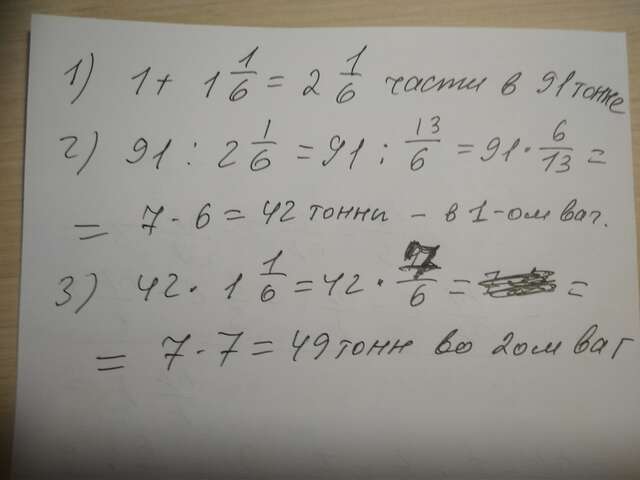 1) 1 + 1 1/6 = 2 1/6 части в 91 тонне
2) 91 : 2 1/6 = 91 : 13/6 = 91 · 6/13 =
= 7 · 6 = 42 тонны - в 1-ом ваг.
3) 42 · 1 1/6 = 42 · 7/6 = =
= 7 · 7 = 49 тонн во 2ом ваг